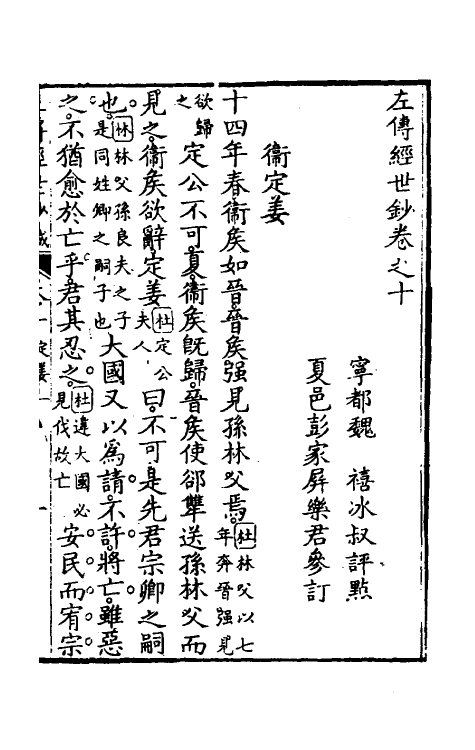 左傳經世鈔卷之十
寧都魏　禧冰叔評點
夏邑彭家屏樂君參訂
衞定姜
十四年春衞矦如晉晉矦强見孫林父焉杜林父以七年奔晉强見
欲歸之定公不可夏衞矦旣歸晉矦使郤犨送孫林父而
見之衞矦欲辭定姜杜定公夫人曰不可是先君宗卿之嗣
也林林父孫良夫之子是同姓卿之嗣子也大國又以爲請不許將亡雖惡
之不猶愈於亡乎君其忍之杜違大國必見伐故亡安民而宥宗